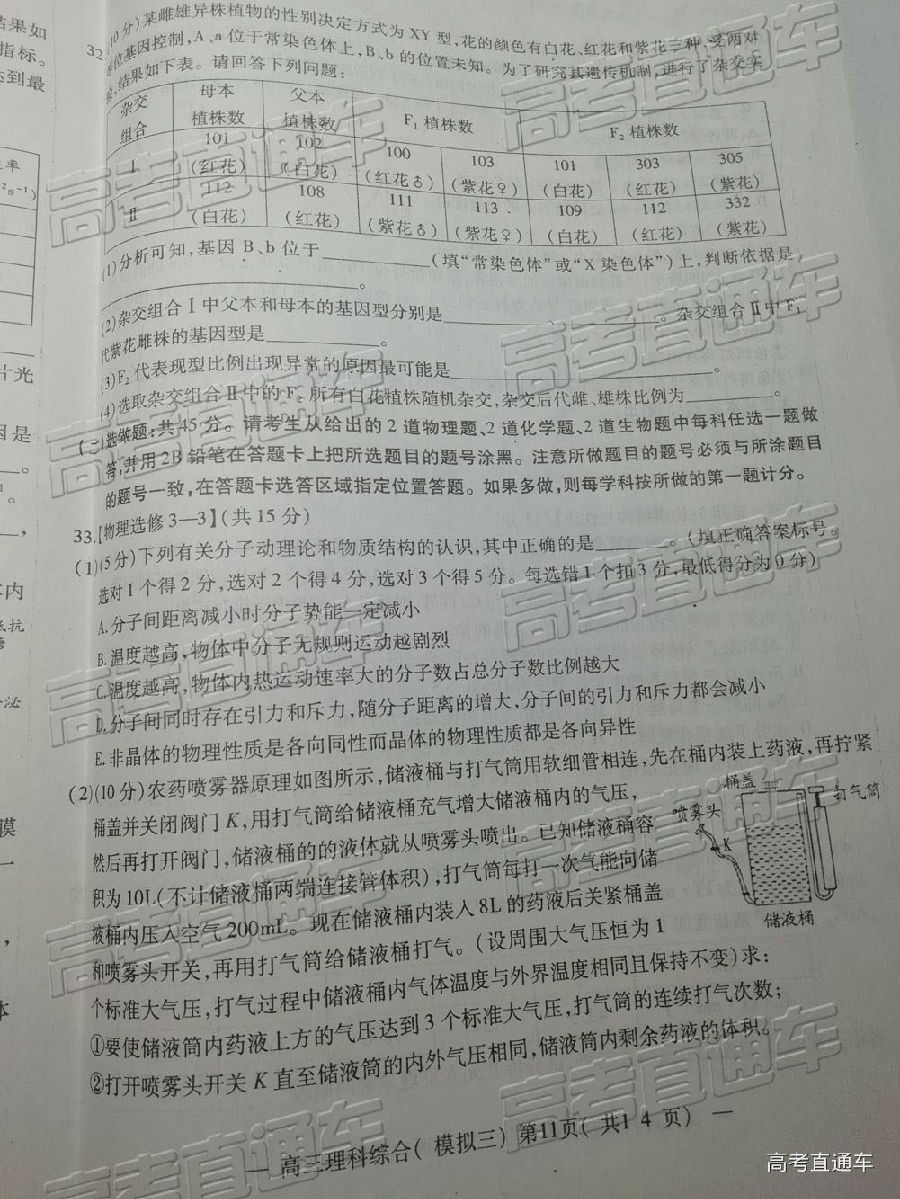 32.(10分)某雌雄异株植物的性别决定方式为XY型,花的颜色有白花、红花和紫花三种,受两对
等位基因控制,A、a位于常染色体上,B、b的位置未知。为了研究其遗传机制,进行了杂交实
验,结果如下表。请回答下列问题:
杂交组合 母本植株数 父本植株数 F₁植株数 F₂植株数
Ⅰ 101(红花) 102(白花) 100(红花♂) 103(紫花♀) 101(白花) 303(红花) 305(紫花)
Ⅱ 112(白花) 108(红花) 111(紫花♂) 113(紫花♀) 109(白花) 112(红花) 332(紫花)
(1)分析可知,基因B、b位于________(填“常染色体”或“X染色体”)上,判断依据是
________。
(2)杂交组合Ⅰ中父本和母本的基因型分别是________、________。杂交组合Ⅱ中F₁
代紫花雌株的基因型是________。
(3)F₂代表现型比例出现异常的原因最可能是________。
(4)选取杂交组合Ⅱ中的F₂所有白花植株随机杂交,杂交后代雌、雄株比例为________。
(二)选做题:共45分。请考生从给出的2道物理题、2道化学题、2道生物题中每科任选一题做
答,并用2B铅笔在答题卡上把所选题目的题号涂黑。注意所做题目的题号必须与所涂题目
的题号一致,在答题卡选答区域指定位置答题。如果多做,则每学科按所做的第一题计分。
33.【物理选修3—3】(共15分)
(1)(5分)下列有关分子动理论和物质结构的认识,其中正确的是________。(填正确答案标号。
选对1个得2分,选对2个得4分,选对3个得5分。每选错1个扣3分,最低得分为0分)
A.分子间距离减小时分子势能一定减小
B.温度越高,物体中分子无规则运动越剧烈
C.温度越高,物体内热运动速率大的分子数占总分子数比例越大
D.分子间同时存在引力和斥力,随分子距离的增大,分子间的引力和斥力都会减小
E.非晶体的物理性质是各向同性而晶体的物理性质都是各向异性
(2)(10分)农药喷雾器原理如图所示,储液桶与打气筒用软细管相连,先在桶内装上药液,再拧紧
桶盖并关闭阀门K,用打气筒给储液桶充气增大储液桶内的气压,
然后再打开阀门,储液桶的的液体就从喷雾头喷出。已知储液桶容
积为10L(不计储液桶两端连接管体积),打气筒每打一次气能向储
液桶内压入空气200mL。现在储液桶内装入8L的药液后关紧桶盖
和喷雾头开关,再用打气筒给储液桶打气。(设周围大气压恒为1
个标准大气压,打气过程中储液桶内气体温度与外界温度相同且保持不变)求:
①要使储液筒内药液上方的气压达到3个标准大气压,打气筒的连续打气次数;
②打开喷雾头开关K直至储液筒的内外气压相同,储液筒内剩余药液的体积。
桶盖
打气筒
喷雾头
K
储液桶
— 高三理科综合( 模拟三) 第11页( 共1 4 页) —
高考直通车